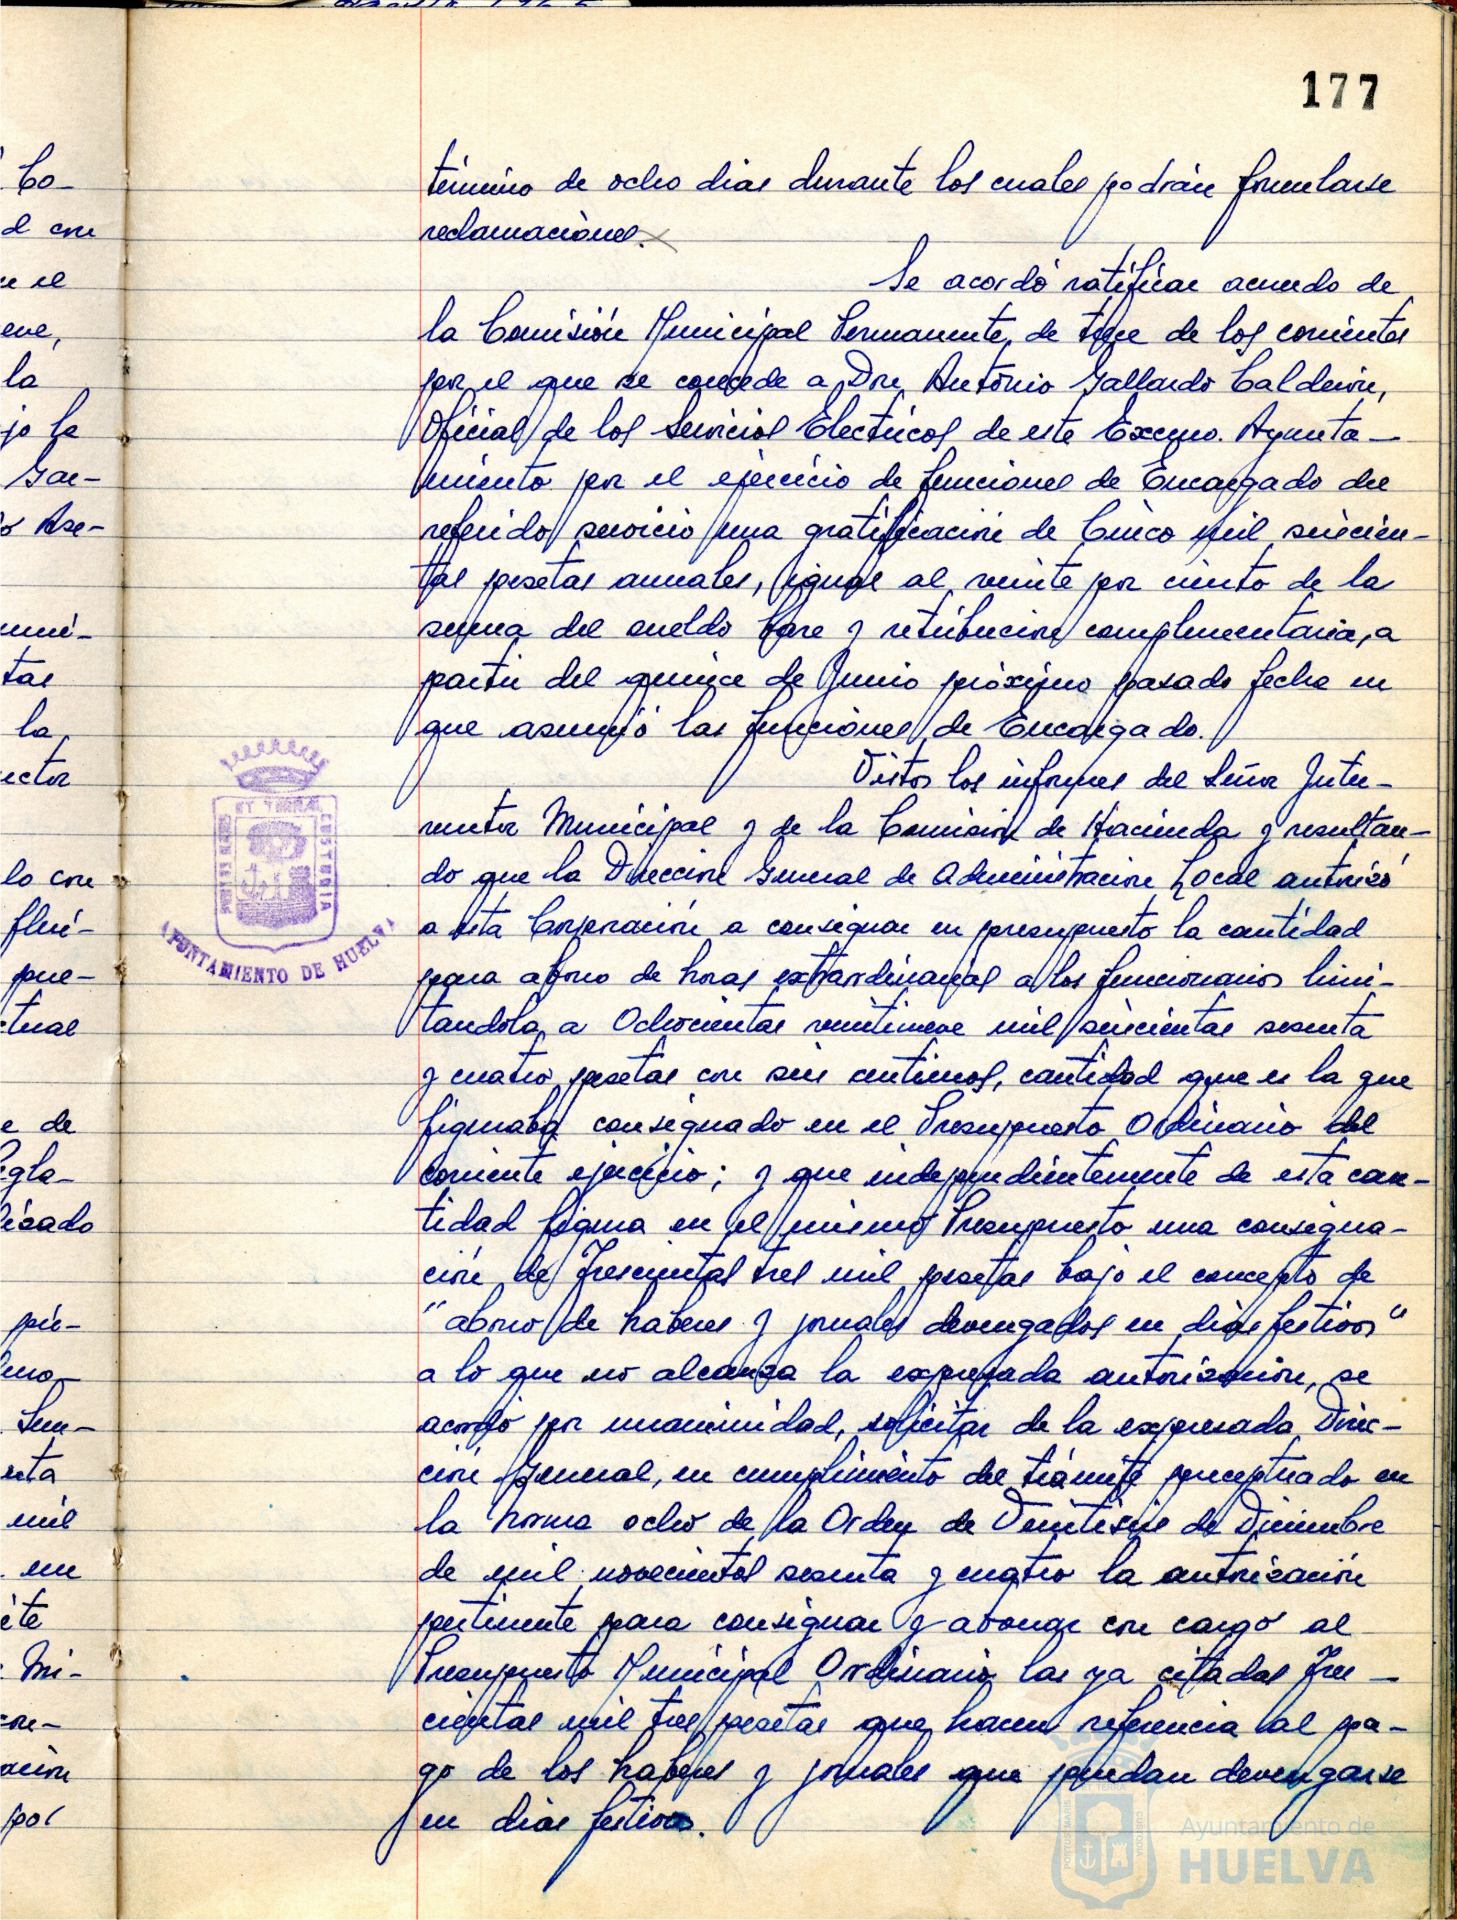 177
término de ocho dias durante los cuales podrán formularse
reclamaciones.
Se acordó ratificar acuerdo de
la Comisión Municipal Permanente, de trece de los corrientes
por el que se concede a Don Antonio Gallardo Calderón,
Oficial de los Servicios Electricos de este Excmo. Ayunta-
miento por el ejercicio de funciones de Encargado del
referido servicio una gratificación de Cinco mil seiscien-
tas pesetas anuales, igual al veinte por ciento de la
suma del sueldo base y retribución complementaria, a
partir del quince de Junio próximo pasado fecha en
que asumió las funciones de Encargado.
Vistos los informes del Señor Inter-
ventor Municipal y de la Comisión de Hacienda y resultan-
do que la Dirección General de Administración Local autorizó
a esta Corporación a consignar en presupuesto la cantidad
para abono de horas extraordinarias a los funcionarios limi-
tandola a Ochocientas veintinueve mil seiscientas sesenta
y cuatro pesetas con seis centimos, cantidad que es la que
figuraba consignado en el Presupuesto Ordinario del
corriente ejercicio; y que independientemente de esta can-
tidad figura en el mismo Presupuesto una consigna-
ción de Trescientas tres mil pesetas bajo el concepto de
"abono de haberes y jornales devengados en dias festivos"
a lo que no alcanza la expresada autorización, se
acordó por unanimidad, solicitar de la expresada Direc-
ción General, en cumplimiento del trámite preceptuado en
la norma ocho de la Orden de Veintiseis de Diciembre
de mil novecientos sesenta y cuatro la autorización
pertinente para consignar y abonar con cargo al
Presupuesto Municipal Ordinario las ya citadas Tres-
cientas mil tres pesetas que hacen referencia al pa-
go de los haberes y jornales que puedan devengarse
en dias festivos.
PORTUS MARIS ET TERRAE CUSTODIA
AYUNTAMIENTO DE HUELVA
Ayuntamiento de
HUELVA